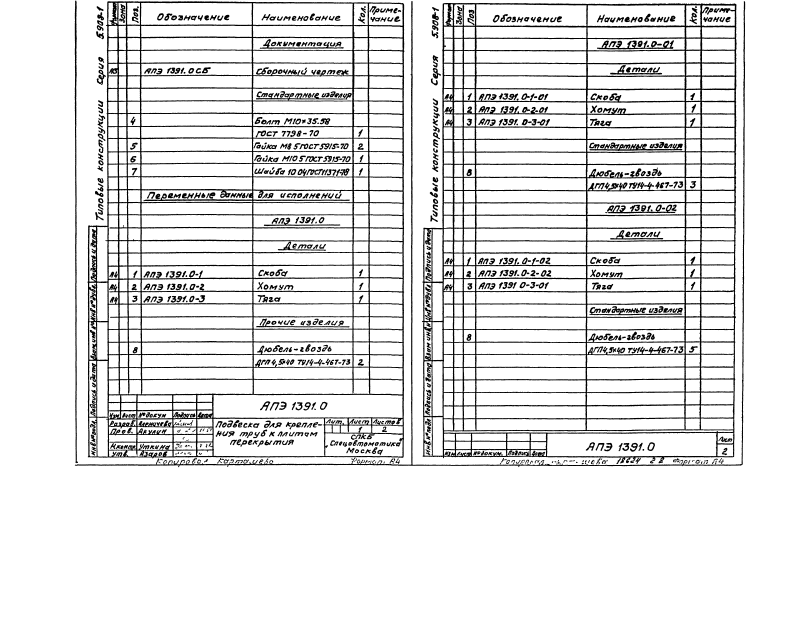 Типовые конструкции Серия 5.908-1
Формат Зона Поз. Обозначение Наименование Кол. Приме-
чание
Документация
А3 АПЭ 1391.0СБ Сборочный чертеж
Стандартные изделия
4 Болт М10×35.58
ГОСТ 7798-70 1
5 Гайка М8 5 ГОСТ 5915-70 2
6 Гайка М10 5 ГОСТ 5915-70 1
7 Шайба 10 04 ГОСТ 11371-78 1
Переменные данные для исполнений
АПЭ 1391.0
Детали
А4 1 АПЭ 1391.0-1 Скоба 1
А4 2 АПЭ 1391.0-2 Хомут 1
А4 3 АПЭ 1391.0-3 Тяга 1
Прочие изделия
8 Дюбель-гвоздь
ДГП 4,5×40 ТУ14-4-467-73 2
Инв.№ подл. Подпись и дата Взам инв № Инв № дубл. Подпись и дата
АПЭ 1391.0
Изм Лист № докум Подпись Дата
Разраб.
Пров. Акулин
Н.контр. Уткина
Утв. Азаров
Подвеска для крепле-
ния труб к плитам
перекрытия
Лит. Лист Листов
1 2
СПКБ
"Спецавтоматика"
Москва
Копировал Карташева Формат А4
Типовые конструкции Серия 5.908-1
Формат Зона Поз Обозначение Наименование Кол. Приме-
чание
АПЭ 1391.0-01
Детали
А4 1 АПЭ 1391.0-1-01 Скоба 1
А4 2 АПЭ 1391.0-2-01 Хомут 1
А4 3 АПЭ 1391.0-3-01 Тяга 1
Стандартные изделия
8 Дюбель-гвоздь
ДГП 4,5×40 ТУ14-4-467-73 3
АПЭ 1391.0-02
Детали
А4 1 АПЭ 1391.0-1-02 Скоба 1
А4 2 АПЭ 1391.0-2-02 Хомут 1
А4 3 АПЭ 1391 0-3-01 Тяга 1
Стандартные изделия
8 Дюбель-гвоздь
ДГП 4,5×40 ТУ14-4-467-73 5
Инв № подл Подпись и дата Взам инв № Инв № дубл. Подпись и дата
Изм Лист № докум. Подпись Дата
АПЭ 1391.0
Лист
2
Копировал 22 Формат А4